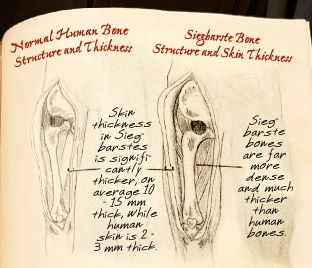 Normal Human Bone
Structure and Thickness
Siegbarste Bone
Structure and Skin Thickness
Skin
thickness
in Sieg-
barstes
is signifi-
cantly
thicker, on
average 10
- 15 mm
thick, while
human
skin is 2 -
3 mm thick.
Sieg-
barste
bones
are far
more
dense
and much
thicker
than
human
bones.